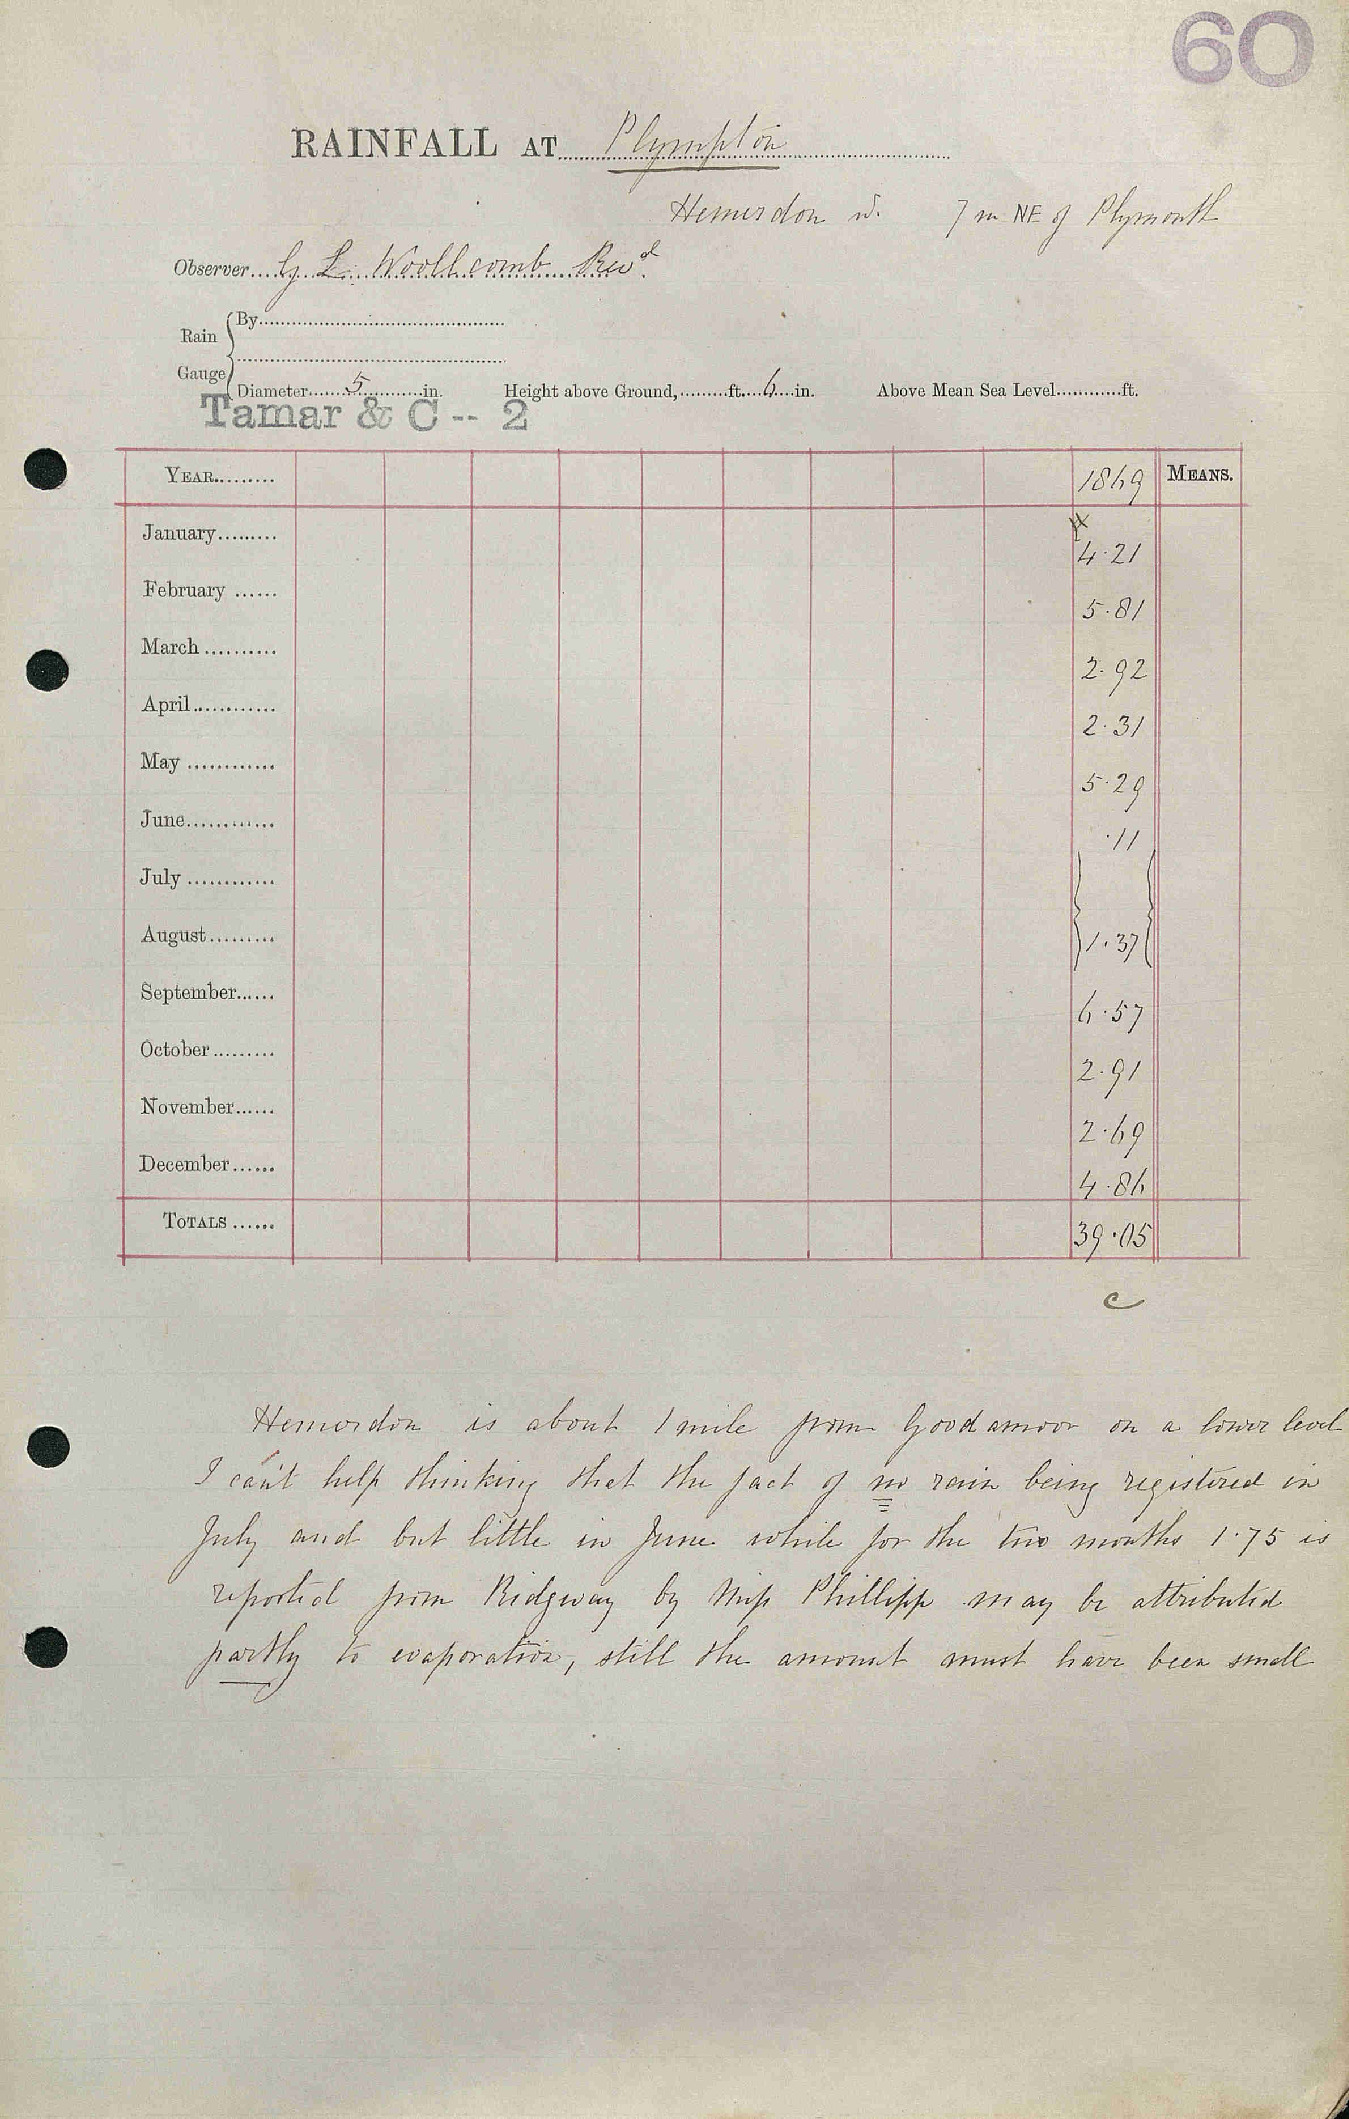 60
RAINFALL AT Plympton
Hemerdon 7 m NE of Plymouth
Observer G L Woollcomb Revd
Rain Gauge
By
Diameter 5 in. Height above Ground, ft. 6 in. Above Mean Sea Level ft.
Tamar & C -- 2
YEAR 1869 MEANS.
January 4.21
February 5.81
March 2.92
April 2.31
May 5.29
June .11
July
August 1.37
September 6.57
October 2.91
November 2.69
December 4.86
TOTALS 39.05
c
Hemerdon is about 1 mile from Goodamoor on a lower level
I can't help thinking that the fact of no rain being registered in
July and but little in June while for the two months 1.75 is
reported from Ridgway by Miss Phillipps may be attributed
partly to evaporation, still the amount must have been small